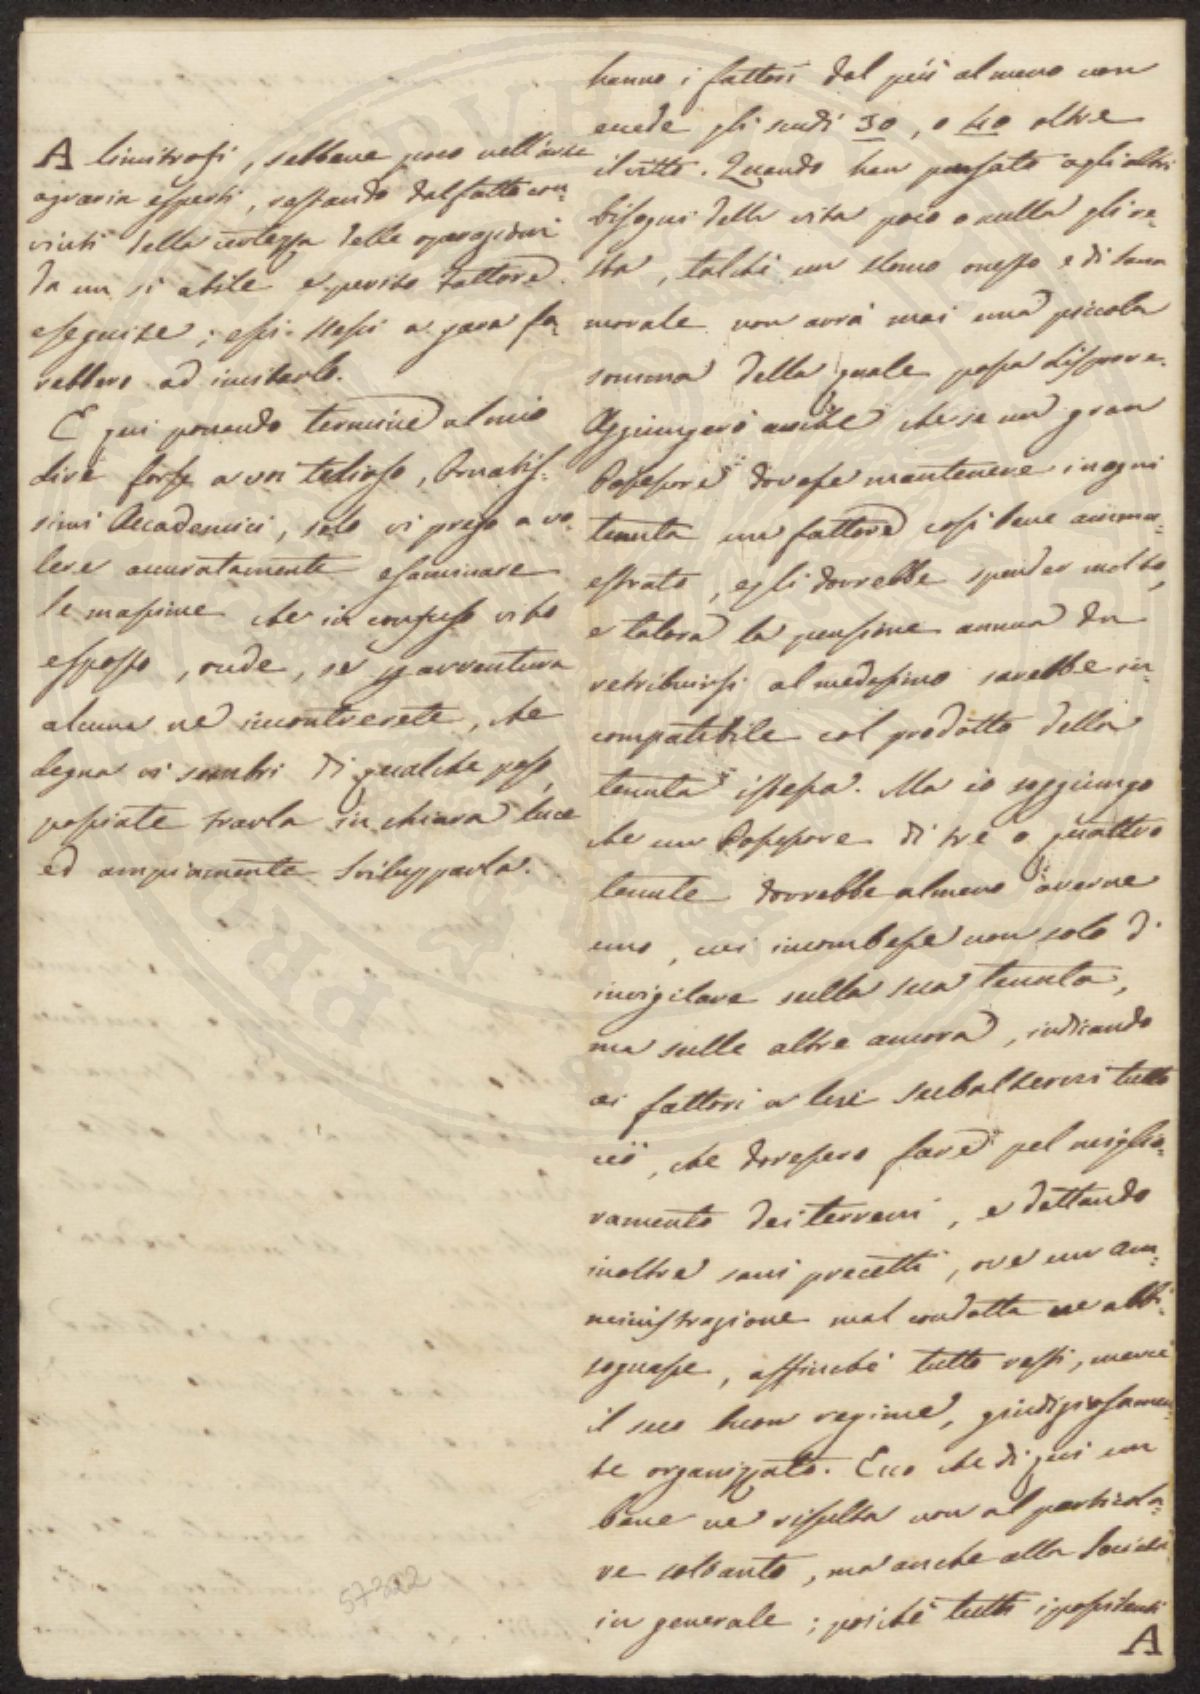 A limitrofi, sebbene poco nell'arte
agraria esperti, restando dal fatto con-
vinti della certezza delle operazioni
da un si abile e perito Fattore
eseguite; essi stessi a gara fa-
rebbero ad imitarlo.
E qui ponendo termine al mio
dire forse a voi tedioso, Ornatis-
simi Accademici, solo vi prego a vo-
lere accuratamente esaminare
le massime che in confuso vi ho
esposto, onde, se per avventura
alcuna ne incontrerete, che
degna vi sembri di qualche peso,
possiate trarla in chiara luce
ed ampiamente svilupparla.
57222
hanno i fattori dal più al meno non
eccede gli scudi 30, o 40 oltre
il vitto. Quando han pensato agli altri
bisogni della vita poco o nulla gli re-
sta, talchè un Uomo onesto e di sana
morale non avrà mai una piccola
somma della quale possa disporre.
Aggiungerò anche che se un gran
Possessore dovesse mantenere in ogni
tenuta un fattore così bene amma-
estrato, egli dovrebbe spender molto,
e talora la pensione annua da
retribuirsi al medesimo sarebbe in-
compatibile col prodotto della
tenuta istessa. Ma io soggiungo
che un Possessore di tre o quattro
tenute dovrebbe almeno averne
uno, cui incombesse non solo d'
invigilare sulla sua tenuta,
ma sulle altre ancora, indicando
ai fattori a lui subalterni tutto
ciò, che dovessero fare pel miglio-
ramento dei terreni, e dettando
inoltre sani precetti, ove un am-
ministrazione mal condotta ne abbi-
sognasse, affinchè tutto resti, mercè
il suo buon regime, giudiziosamen-
te organizzato. Ecco che di qui un
bene ne risulta non al particola-
re soltanto, ma anche alla Società
in generale; poichè tutti i possidenti
A